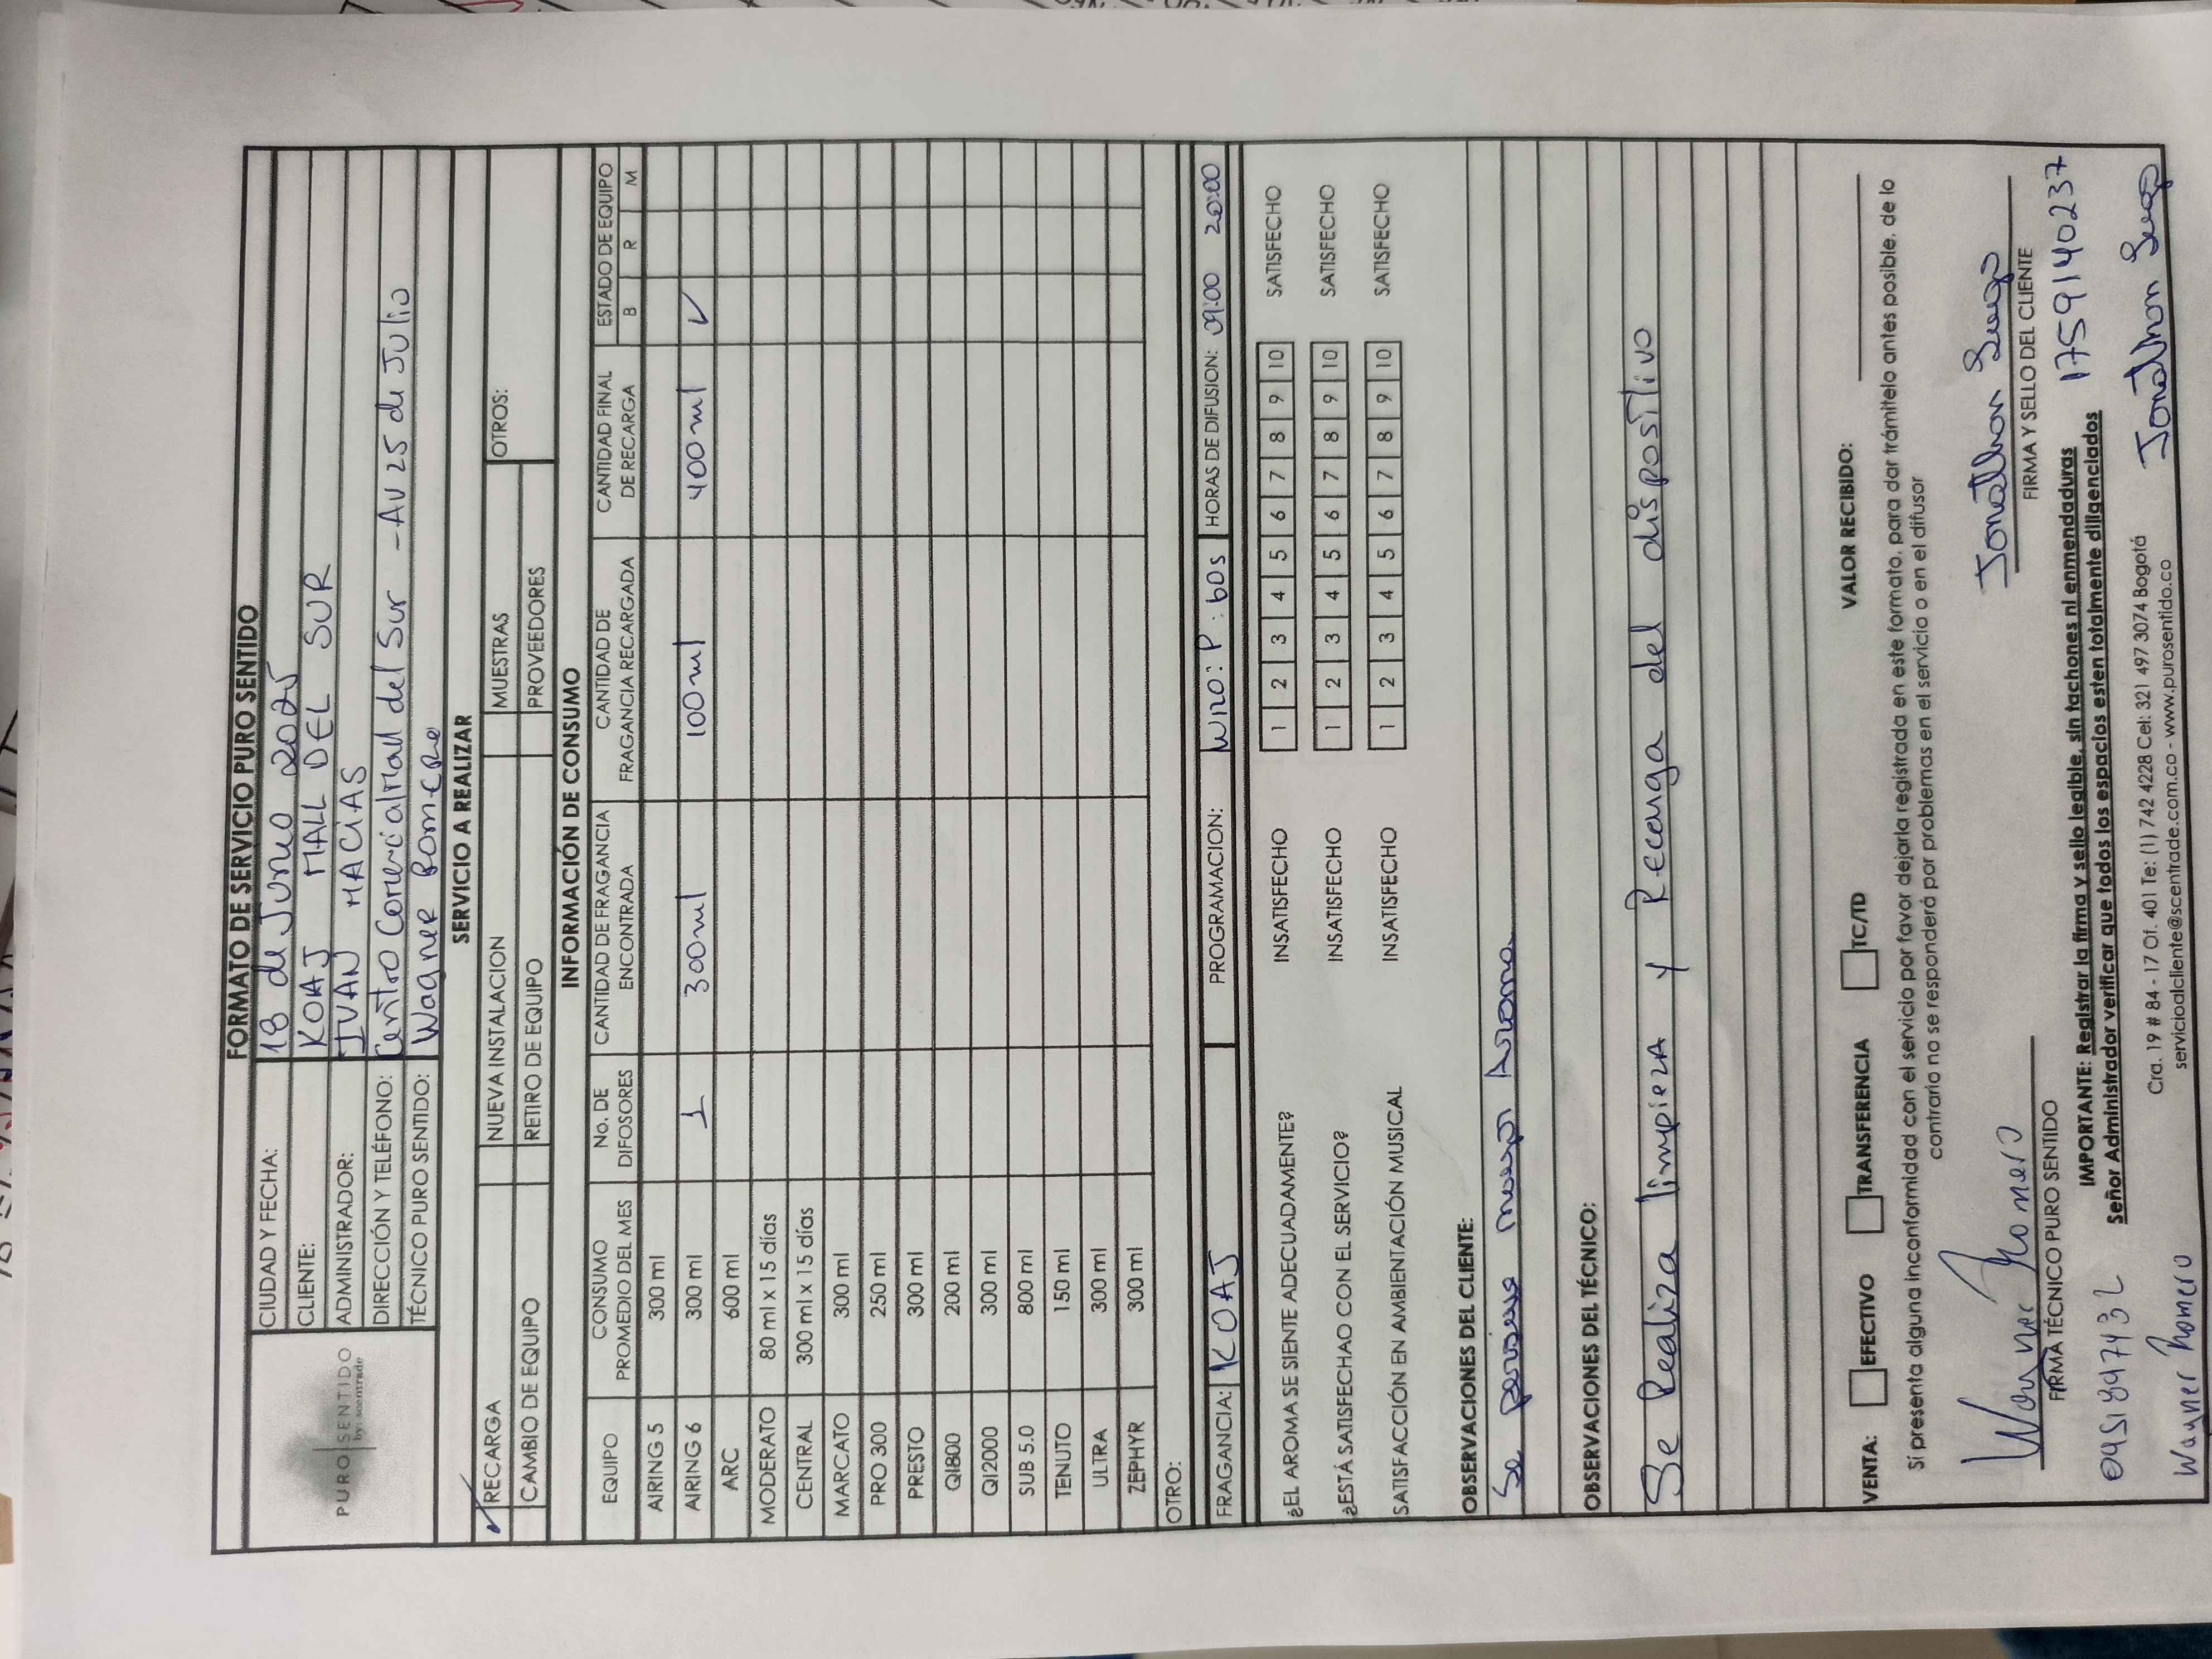 FORMATO DE SERVICIO PURO SENTIDO
PURO SENTIDO
by: scentrade
CIUDAD Y FECHA: 18 de Junio 2025
CLIENTE: KOAJ MALL DEL SUR
ADMINISTRADOR: IVAN MACIAS
DIRECCIÓN Y TELÉFONO: Centro Comercial Mall del Sur - AV 25 de Julio
TÉCNICO PURO SENTIDO: Wagner Romero
SERVICIO A REALIZAR
✓ RECARGA NUEVA INSTALACION MUESTRAS OTROS:
CAMBIO DE EQUIPO RETIRO DE EQUIPO PROVEEDORES
INFORMACIÓN DE CONSUMO
EQUIPO CONSUMO PROMEDIO DEL MES No. DE DIFOSORES CANTIDAD DE FRAGANCIA ENCONTRADA CANTIDAD DE FRAGANCIA RECARGADA CANTIDAD FINAL DE RECARGA ESTADO DE EQUIPO
B R M
AIRING 5 300 ml
AIRING 6 300 ml 1 300ml 100ml 400ml ✓
ARC 600 ml
MODERATO 80 ml x 15 días
CENTRAL 300 ml x 15 días
MARCATO 300 ml
PRO 300 250 ml
PRESTO 300 ml
QI800 200 ml
QI2000 300 ml
SUB 5.0 800 ml
TENUTO 150 ml
ULTRA 300 ml
ZEPHYR 300 ml
OTRO:
FRAGANCIA: KOAJ PROGRAMACION: W120: P: 60s HORAS DE DIFUSION: 09:00 20:00
¿EL AROMA SE SIENTE ADECUADAMENTE? INSATISFECHO 1 2 3 4 5 6 7 8 9 10 SATISFECHO
¿ESTÁ SATISFECHAO CON EL SERVICIO? INSATISFECHO 1 2 3 4 5 6 7 8 9 10 SATISFECHO
SATISFACCIÓN EN AMBIENTACIÓN MUSICAL INSATISFECHO 1 2 3 4 5 6 7 8 9 10 SATISFECHO
OBSERVACIONES DEL CLIENTE:
Se Aroma
OBSERVACIONES DEL TÉCNICO:
Se Realiza limpieza y Recarga del dispositivo
VENTA: EFECTIVO TRANSFERENCIA TC/TD VALOR RECIBIDO:
Si presenta alguna inconformidad con el servicio por favor dejarla registrada en este formato, para dar trámitelo antes posible, de lo
contrario no se responderá por problemas en el servicio o en el difusor
Wagner Romero Jonathan
FIRMA TÉCNICO PURO SENTIDO FIRMA Y SELLO DEL CLIENTE
1759140237
IMPORTANTE: Registrar la firma y sello legible, sin tachones ni enmendaduras
Señor Administrador verificar que todos los espacios esten totalmente diligenciados
Wagner Romero Jonathan
Cra. 19 # 84 - 17 Of. 401 Te: (1) 742 4228 Cel: 321 497 3074 Bogotá
servicioalcliente@scentrade.com.co - www.purosentido.co